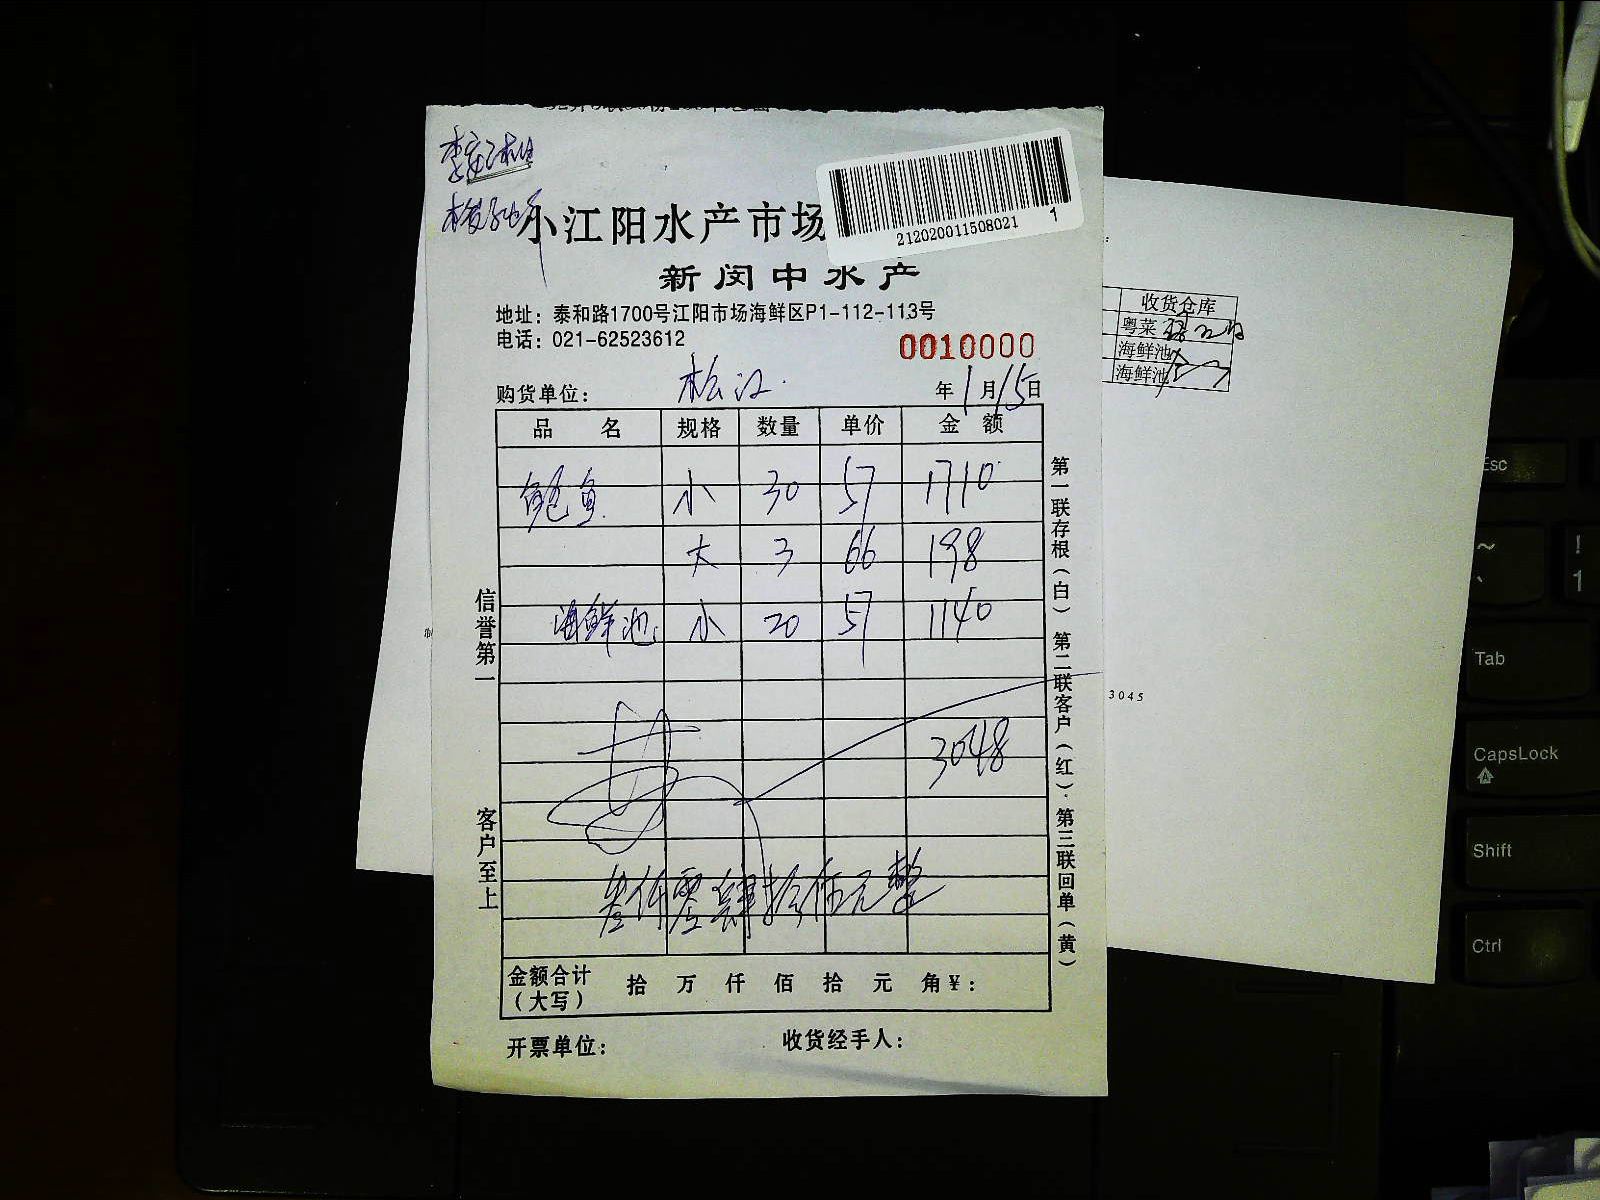 小江阳水产市场
212020011508021
1
新闵中水产
地址：泰和路1700号江阳市场海鲜区P1-112-113号
电话：021-62523612
0010000
购货单位： 松江
年1月15日
品 名 规格 数量 单价 金 额
鲍鱼 小 30 57 1710
大 3 66 198
海鲜池 小 20 57 1140
3048
叁仟零肆拾伍元整
金额合计（大写） 拾 万 仟 佰 拾 元 角 ¥：
开票单位： 收货经手人：
信誉第一
客户至上
第一联存根（白）第二联客户（红）．第三联回单（黄）
收货仓库
粤菜
海鲜池
海鲜池
3045
Esc
~
`
!
1
Tab
CapsLock
Shift
Ctrl